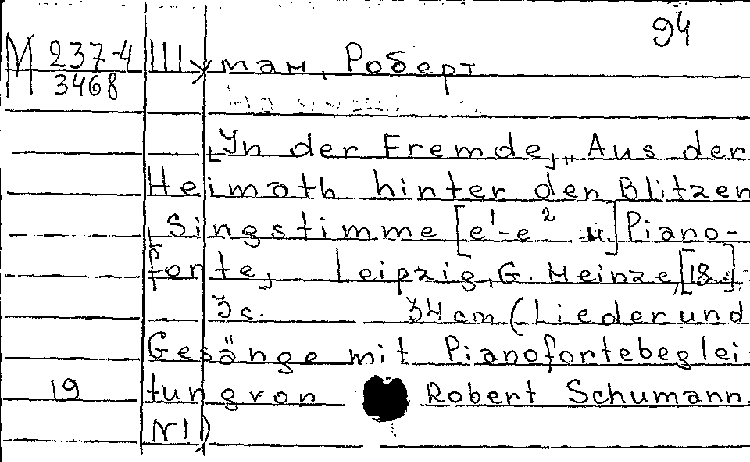 94
М 237-4
3468
Шуман, Роберт
[In der Fremde, „Aus der
Heimath hinter den Blitzen
, Singstimme [e¹-e² u.] Piano-
forte, Leipzig, G. Heinze, [18..].
3 с. 34 cm (Lieder und
Gesänge mit Pianofortebeglei
19 tung von Robert Schumann
N 1)